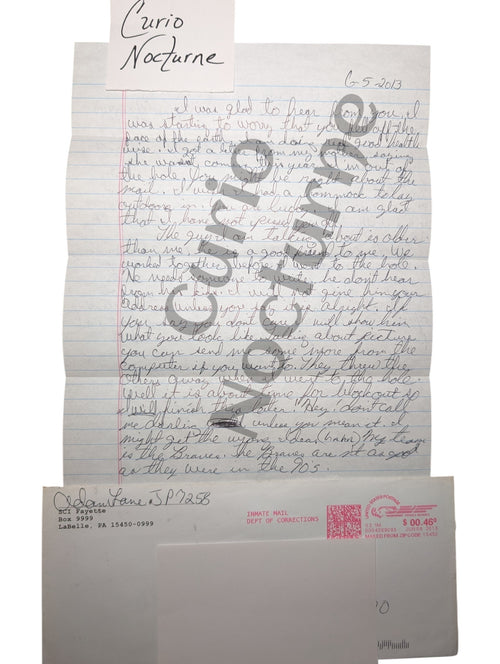 Curio
Nocturne
6-5-2013
I was glad to hear from you. I
was starting to worry that you fell off the
face of the earth. I am doing good health
wise. I got a letter from my saying
the worst come this year. I'm out of
the hole. about the
mail. I had a hammock today
outdoors in I am glad
that I have not pissed you off.
The guy I am talking about is older
than me. He is a good friend to me. We
worked together before I went to the hole.
He needs someone to write he don't hear
from his kids. I will not give him your
address unless you say it is alright. If
you say you don't care I will show him
what you look like. Talking about pictures
you can send me some more from the
computer if you want to. They threw the
others away when I went to the hole.
Well it is about time for blockout so
I will finish this later. "Hey don't call
me darling unless you mean it. I
might get the wrong idea (haha) My team
is the Braves. The Braves are not as good
as they were in the 90s.
Curio Nocturne
Adam Lane JP7258
SCI Fayette
Box 9999
LaBelle, PA 15450-0999
INMATE MAIL
DEPT OF CORRECTIONS
$ 00.46⁰
MAILED FROM ZIP CODE 15450